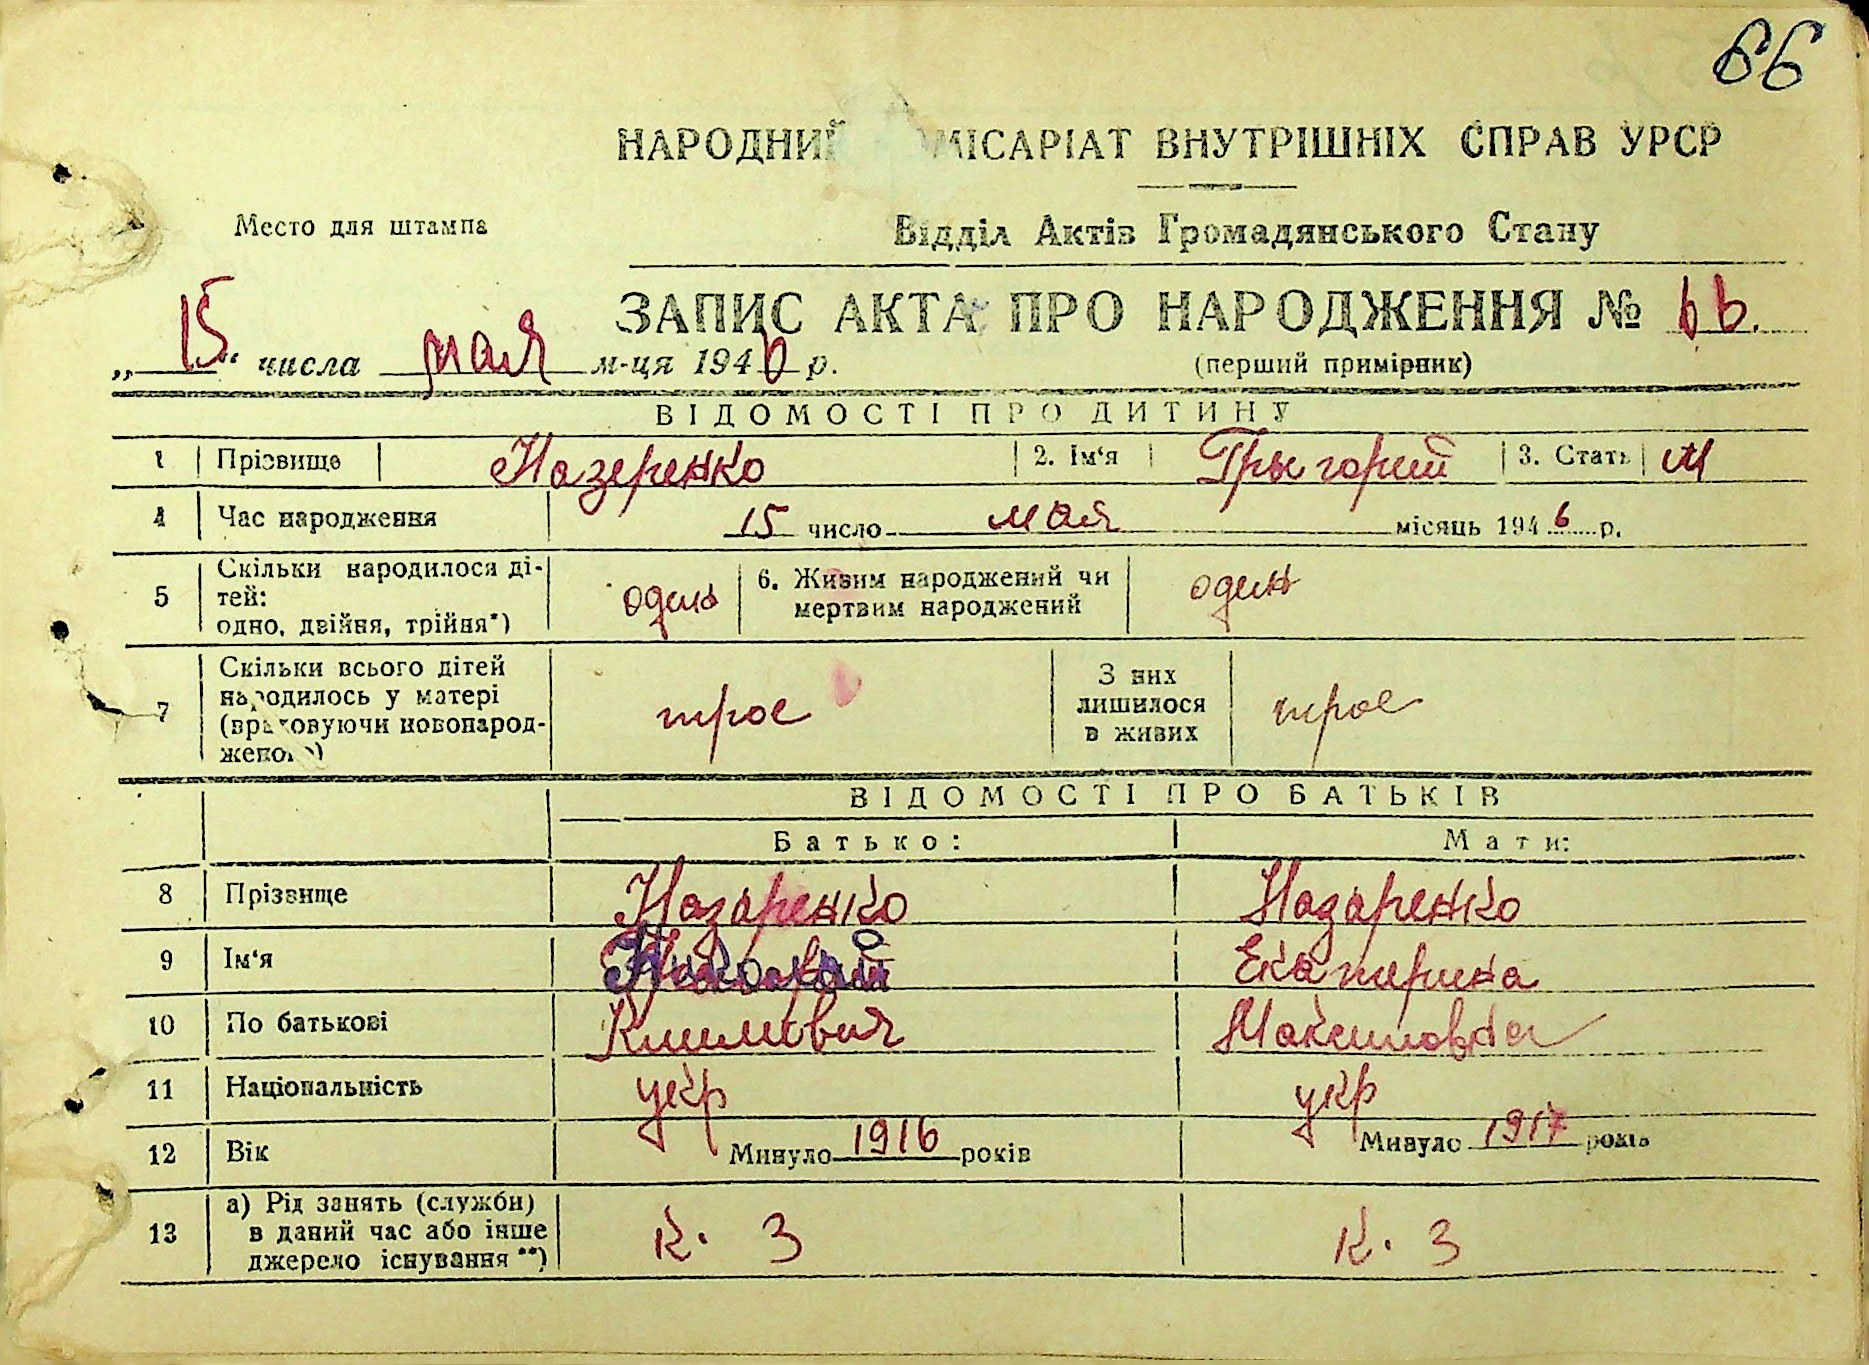 66
НАРОДНИЙ КОМІСАРІАТ ВНУТРІШНІХ СПРАВ УРСР
Место для штампа
Відділ Актів Громадянського Стану
ЗАПИС АКТА ПРО НАРОДЖЕННЯ № 66.
„15“ числа мая м-ця 1946 р.
(перший примірник)
ВІДОМОСТІ ПРО ДИТИНУ
1 Прізвище Назеренко 2. Ім‘я Грыгорий 3. Стать М
4 Час народження 15 число мая місяць 1946 р.
5 Скільки народилося ді-
тей:
одно, двійня, трійня*) один
6. Живим народжений чи
мертвим народжений один
7 Скільки всього дітей
народилось у матері
(враховуючи новонарод-
женого) трое
З них
лишилося
в живих трое
ВІДОМОСТІ ПРО БАТЬКІВ
Батько: Мати:
8 Прізвище Назаренко Назаренко
9 Ім‘я Екатерина
10 По батькові Климович Максимовна
11 Національність укр укр
12 Вік Минуло 1916 років Минуло 1917 років
13 а) Рід занять (служби)
в даний час або інше
джерело існування **) К. З К. З